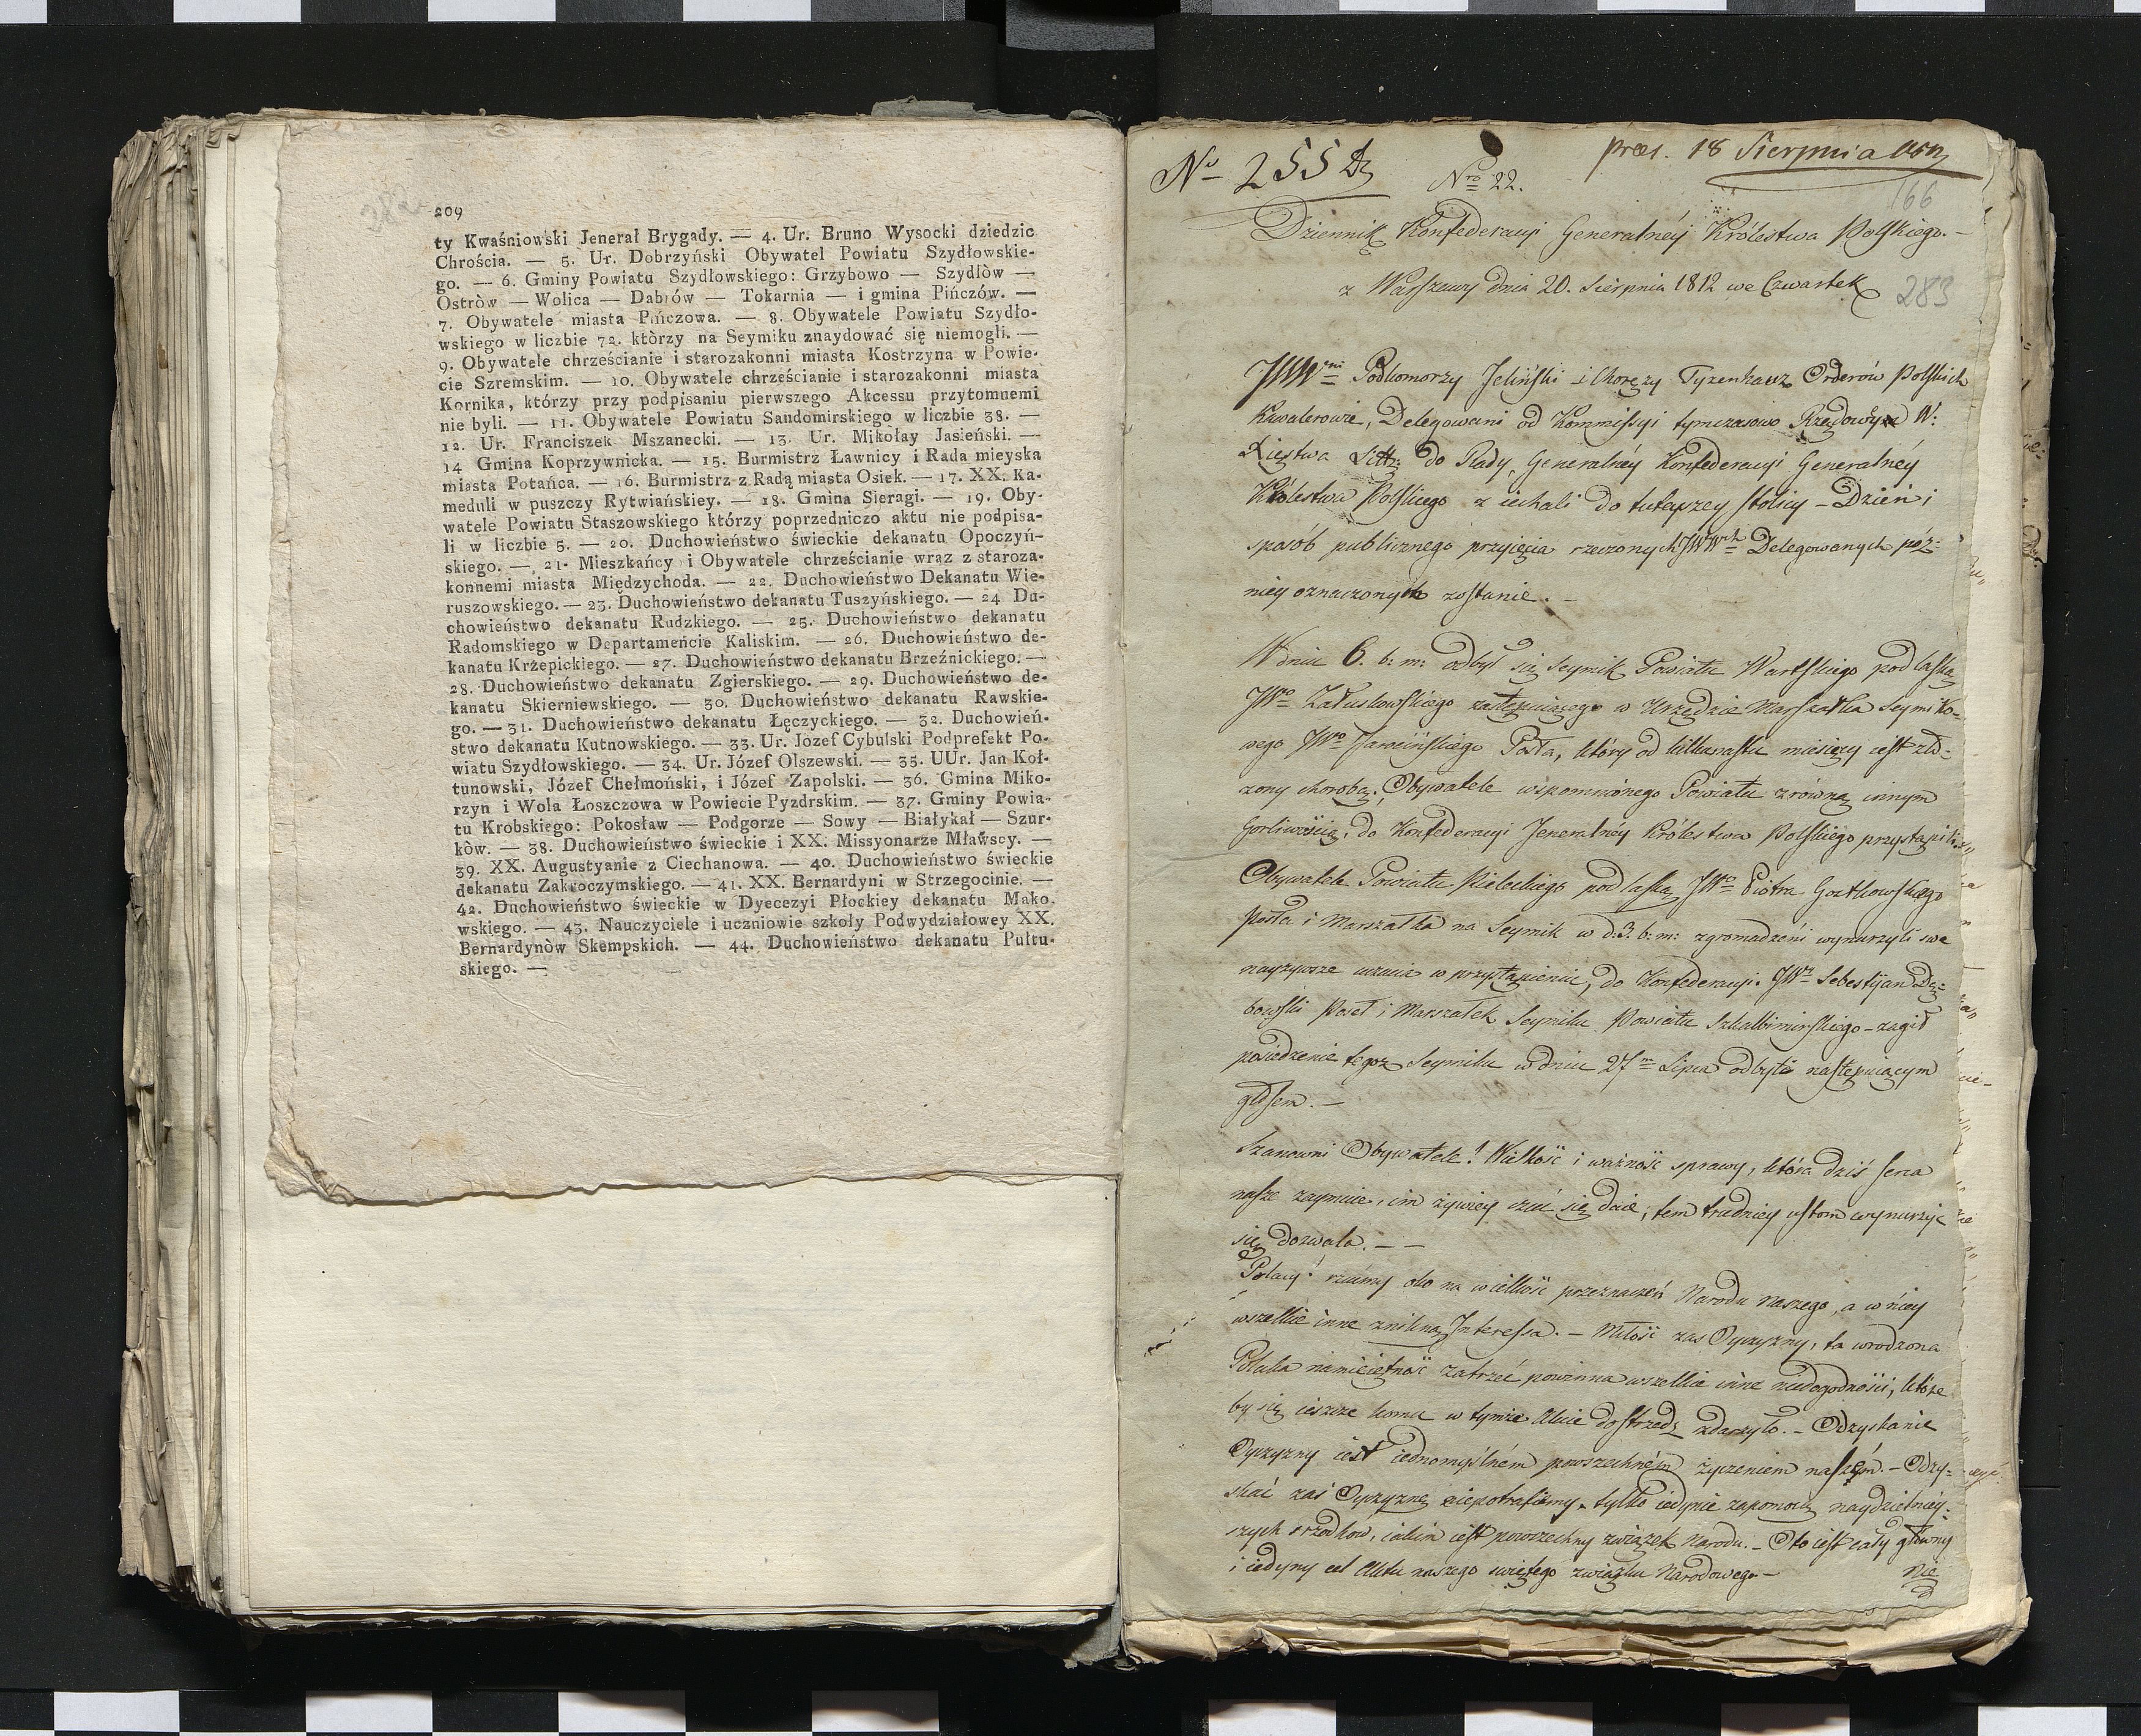 209
ty Kwaśniowski Jenerał Brygady. — 4. Ur. Bruno Wysocki dziedzic
Chrościa. — 5. Ur. Dobrzyński Obywatel Powiatu Szydłowskie-
go. — 6. Gminy Powiatu Szydłowskiego: Grzybowo — Szydłòw —
Ostròw — Wolica — Dabròw — Tokarnia — i gmina Pińczów. —
7. Obywatele miasta Pińczowa. — 8. Obywatele Powiatu Szydło-
wskiego w liczbie 72. ktòrzy na Seymiku znaydować się niemogli. —
9. Obywatele chrześcianie i starozakonni miasta Kostrzyna w Powie-
cie Szremskim. — 10. Obywatele chrześcianie i starozakonni miasta
Kornika, którzy przy podpisaniu pierwszego Akcessu przytomnemi
nie byli. — 11. Obywatele Powiatu Sandomirskiego w liczbie 38. —
12. Ur. Franciszek Mszanecki. — 13. Ur. Mikołay Jasieński. —
14 Gmina Koprzywnicka. — 15. Burmistrz Ławnicy i Rada mieyska
miasta Potańca. — 16. Burmistrz z Radą miasta Osiek. — 17. XX. Ka-
meduli w puszczy Rytwiańskiey. — 18. Gmina Sieragi. — 19. Oby-
watele Powiatu Staszowskiego którzy poprzedniczo aktu nie podpisa-
li w liczbie 5. — 20. Duchowieństwo świeckie dekanatu Opoczyń-
skiego. — 21. Mieszkańcy i Obywatele chrześcianie wraz z staroza-
konnemi miasta Międzychoda. — 22. Duchowieństwo Dekanatu Wie-
ruszowskiego. — 23. Duchowieństwo dekanatu Tuszyńskiego. — 24 Du-
chowieństwo dekanatu Rudzkiego. — 25. Duchowieństwo dekanatu
Radomskiego w Departameńcie Kaliskim. — 26. Duchowieństwo de-
kanatu Krżepickiego. — 27. Duchowieństwo dekanatu Brzeźnickiego. —
28. Duchowieństwo dekanatu Zgierskiego. — 29. Duchowieństwo de-
kanatu Skierniewskiego. — 30. Duchowieństwo dekanatu Rawskie-
go. — 31. Duchowieństwo dekanatu Łęczyckiego. — 32. Duchowień-
stwo dekanatu Kutnowskiego. — 33. Ur. Jozef Cybulski Podprefekt Po-
wiatu Szydłowskiego. — 34. Ur. Józef Olszewski. — 35. UUr. Jan Koł-
tunowski, Józef Chełmoński, i Józef Zapolski. — 36. Gmina Miko-
rzyn i Wola Łoszczowa w Powiecie Pyzdrskim. — 37. Gminy Powia-
tu Krobskiego: Pokosław — Podgorze — Sowy — Białykał — Szur-
kòw. — 38. Duchowieństwo świeckie i XX. Missyonarze Mławscy. —
39. XX. Augustyanie z Ciechanowa. — 40. Duchowieństwo świeckie
dekanatu Zakroczymskiego. — 41. XX. Bernardyni w Strzegocinie. —
42. Duchowieństwo świeckie w Dyecezyi Płockiey dekanatu Mako-
wskiego. — 43. Nauczyciele i uczniowie szkoły Podwydziałowey XX.
Bernardynòw Skempskich. — 44. Duchowieństwo dekanatu Pułtu-
skiego. —
præs. 18 Sierpnia
No 255
Nro 22.
166
Dziennik Konfederacyi Generalnéy Królestwa Polskiego. —
z Warszawy dnia 20. Sierpnia 1812 we Czwartek
283
JWWni Podkomorzy Jeliński i Chorąży Tyzenhauz Orderów Polskich
Kawalerowie, Delegowani od Kommissyi tymczasowo Rządowéy W:
Xięstwa Litt: do Rady Generalnéy Konfederacyi Generalnéy
Królestwa Polskiego ziechali do tuteyszey stolicy — Dzień i
sposób publicznego przyięcia rzeczonych JWWch Delegowanych póź-
niey oznaczonym zostanie. —
W dniu 6. b: m: odbył się Seymik Powiatu Wartskiego pod laską
JWo Załuskowskiego zastępuiącego w Urzędzie Marszałka Seymiko-
wego JWo Jarocińskiego Posła, który od kilkunastu miesięcy iest zło-
żony chorobą. Obywatele wspomnionego Powiatu z równą innym
Gorliwością, do Konfederacyi Jeneralnéy Królestwa Polskiego przystąpili.
Obywatele Powiatu Kieleckiego pod laską JWo Piotra Gostkowskiego
Posła i Marszałka na Seymik w d: 3. b: m: zgromadzeni wynurzyli swe
nayżywsze uczucia w przystąpieniu, do Konfederacyi. JWy Sebestyan Dę-
bowski Poseł i Marszałek Seymiku Powiatu Szkalbimirskiego — zagił
posiedzenie tegoż Seymiku w dniu 27m Lipca odbyte następuiącym
głosem. —
Szanowni Obywatele! Wielkość i ważność sprawy, która dziś serca
nasze zaymuie, im żywiey czuć się daie, tem trudniey ustom wynurzyć
się dozwala. — —
Polacy! rzućmy oko na wielkość przeznaczeń Narodu naszego, a w niey
wszelkie inne znikną Interessa. — Miłość zas Oyczyzny, ta wrodzona
Polaka namiętność zatrzéć powinna wszelkie inne niedogodności, które
by się ieszcze komu w tymże Akcie dostrzedz zdarzyło. — Odzyskanie
Oyczyzny iest iednomyślném powszechném życzeniem naszém. — Odzy-
skać zaś Oyczyznę niepotrafiemy, tylko iedynie zapomocą naydzielniey-
szych srzodkow, iakim iest powszechny związek Narodu. — Oto iest cały główny
i iedyny cel Aktu naszego swiętego związku Narodowego —
Nie